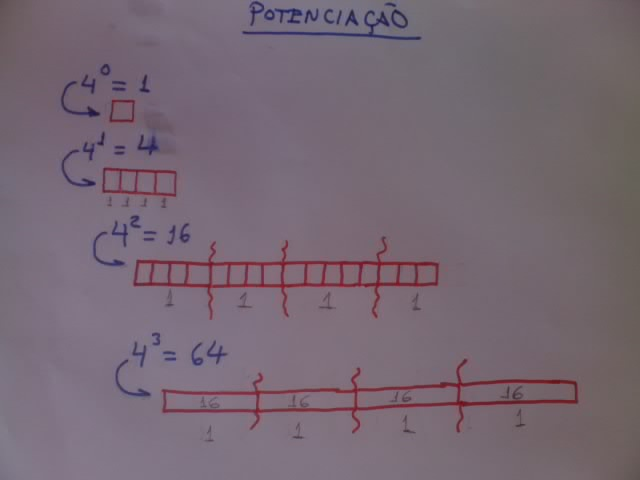 POTENCIAÇÃO
4⁰ = 1
4¹ = 4
1 1 1 1
4² = 16
1 1 1 1
4³ = 64
16 16 16 16
1 1 1 1